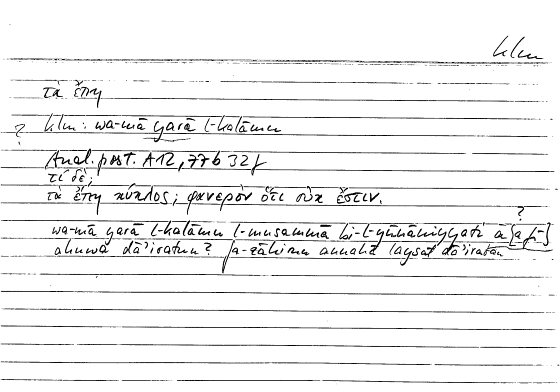 klm
τὰ ἔπη
? klm: wa-mā yarā l-kalāmu
Anal. post. A12, 77b 32f
τί δέ;
τὰ ἔπη κύκλος; φανερὸν ὅτι οὐκ ἔστιν.
?
wa-mā yarā l-kalāmu l-musammā bi-l-yūnāniyyati
ahuwa dā'iratun? fa-ẓāhiru annahā laysat dā'iratan